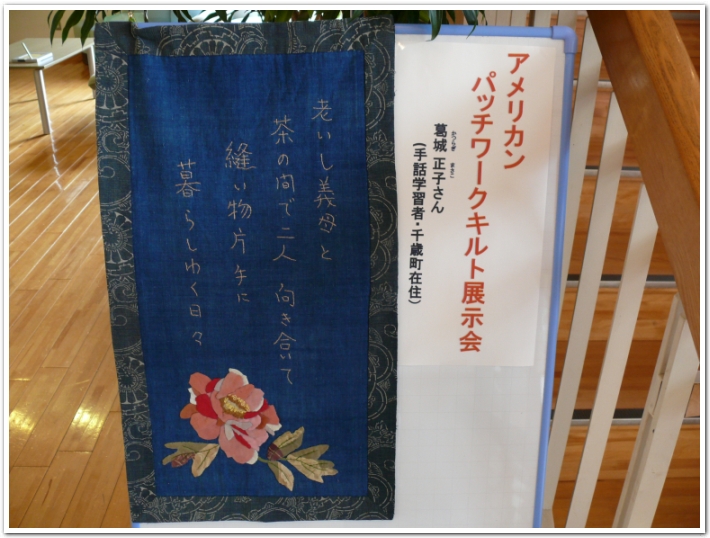 アメリカン
パッチワークキルト展示会
かつらぎ まさこ
葛城 正子さん
(手話学習者・千歳町在住)
老いし義母と
茶の間で二人 向き合いて
縫い物片手に
暮らしゆく日々